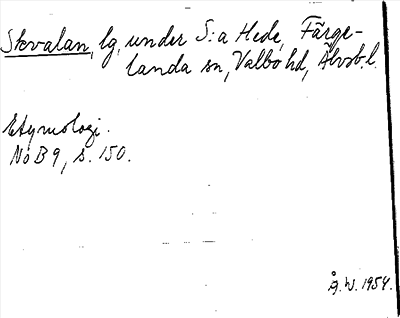 Skvalan, lg. under S:a Hede, Färge-
landa sn, Valbo hd, Älvsb.l.
Etymologi.
NoB 9, s. 150.
Å.W. 1954.